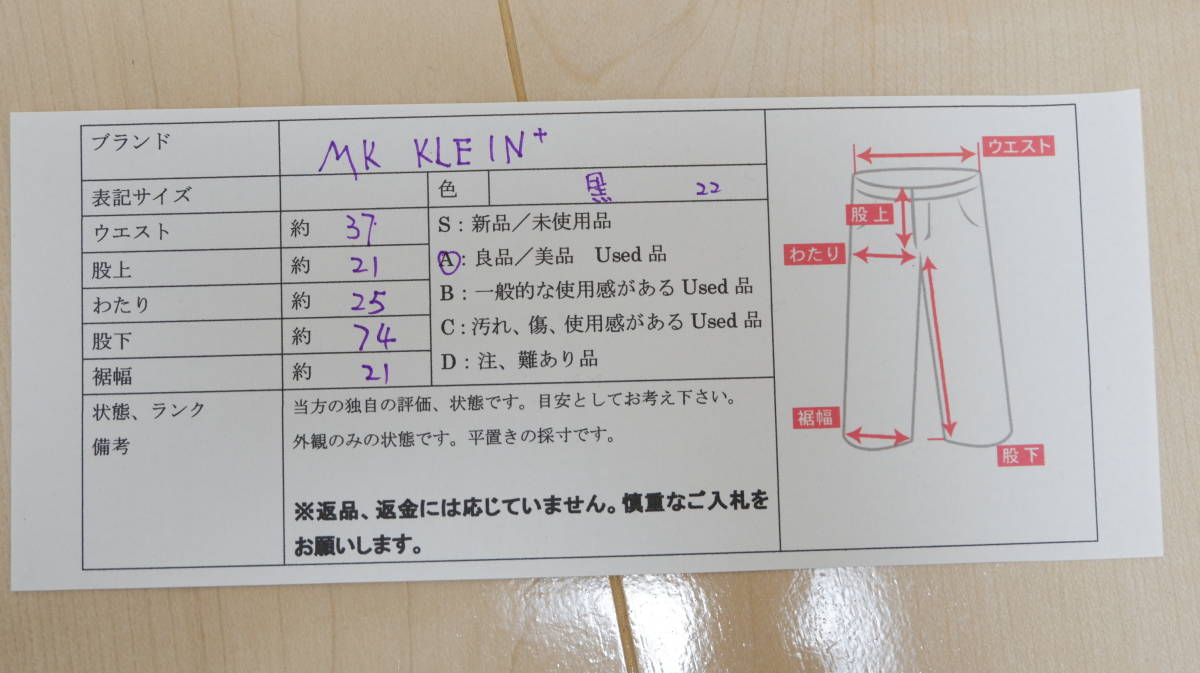 ブランド MK KLEIN+
表記サイズ 色 黒 22
ウエスト 約 37
股上 約 21
わたり 約 25
股下 約 74
裾幅 約 21
S：新品／未使用品
A：良品／美品 Used品
B：一般的な使用感があるUsed品
C：汚れ、傷、使用感があるUsed品
D：注、難あり品
状態、ランク
備考
当方の独自の評価、状態です。目安としてお考え下さい。
外観のみの状態です。平置きの採寸です。
※返品、返金には応じていません。慎重なご入札を
お願いします。
ウエスト
股上
わたり
裾幅
股下